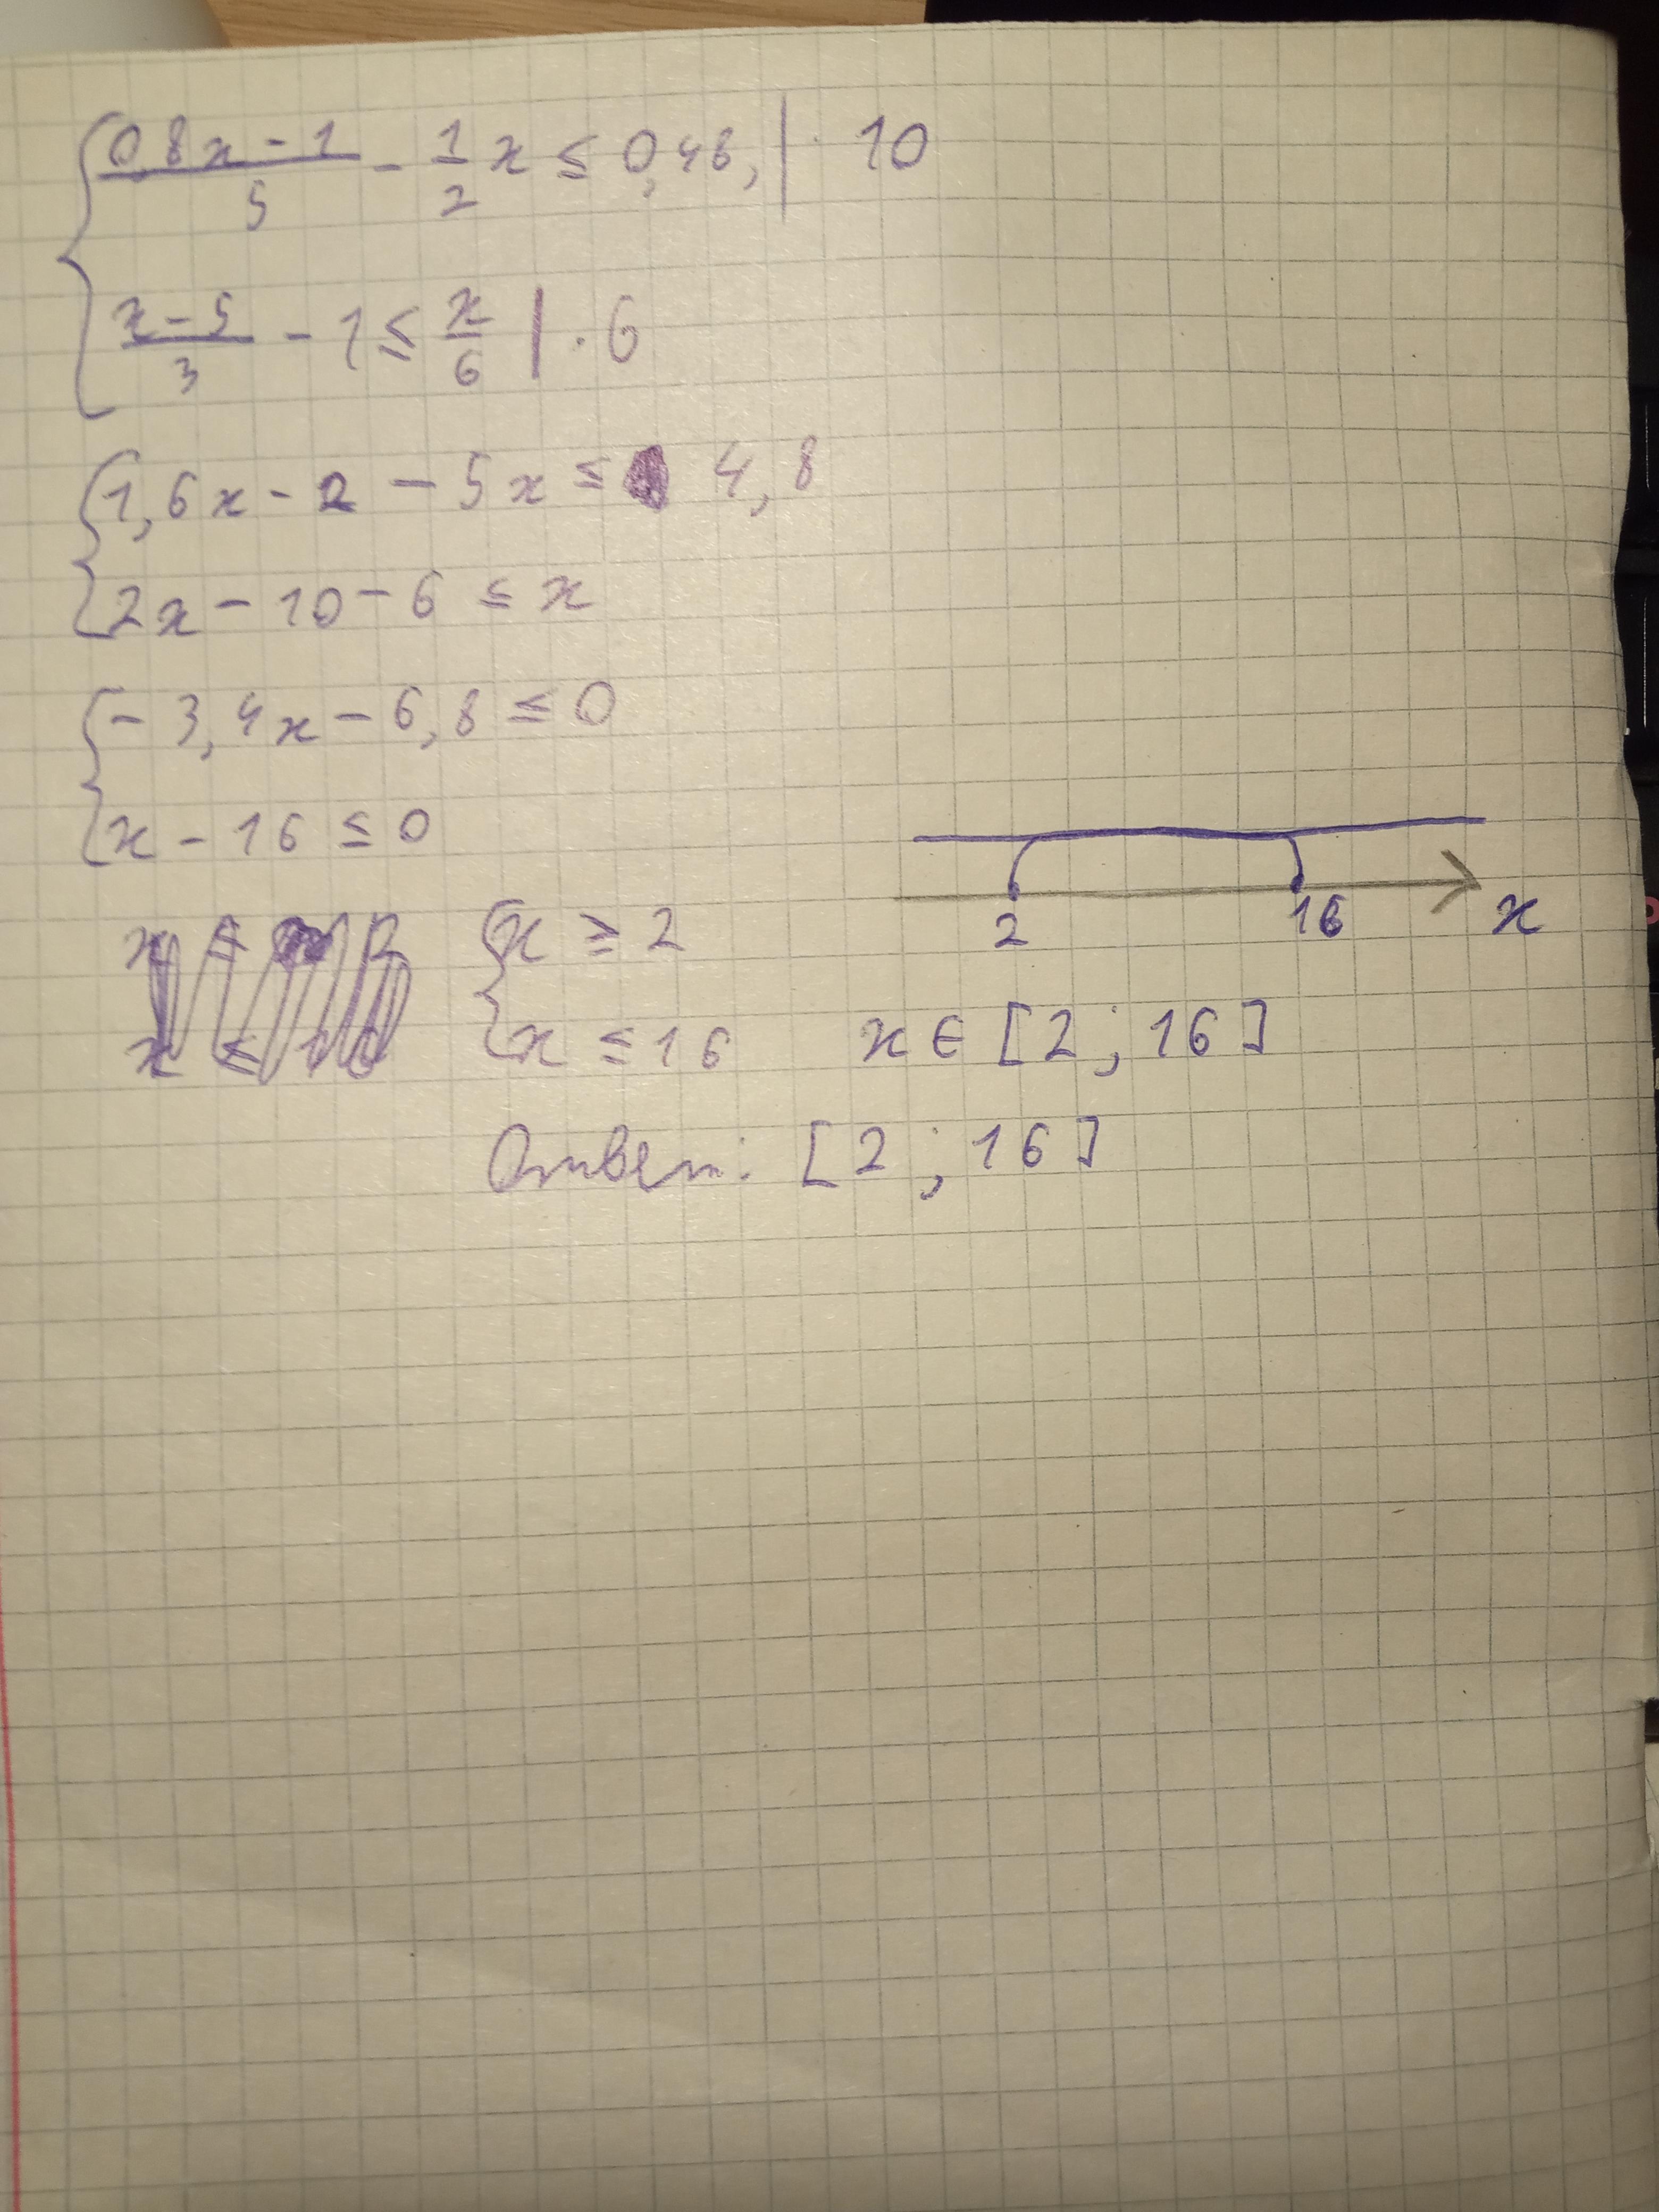 { (0,8x - 1)/5 - 1/2 x ≤ 0,48, | · 10
(x - 5)/3 - 1 ≤ x/6 | · 6
{ 1,6x - 2 - 5x ≤ 4,8
2x - 10 - 6 ≤ x
{ - 3,4x - 6,8 ≤ 0
x - 16 ≤ 0
{ x ≥ 2
x ≤ 16
2 16 x
x ∈ [2; 16]
Ответ: [2; 16]